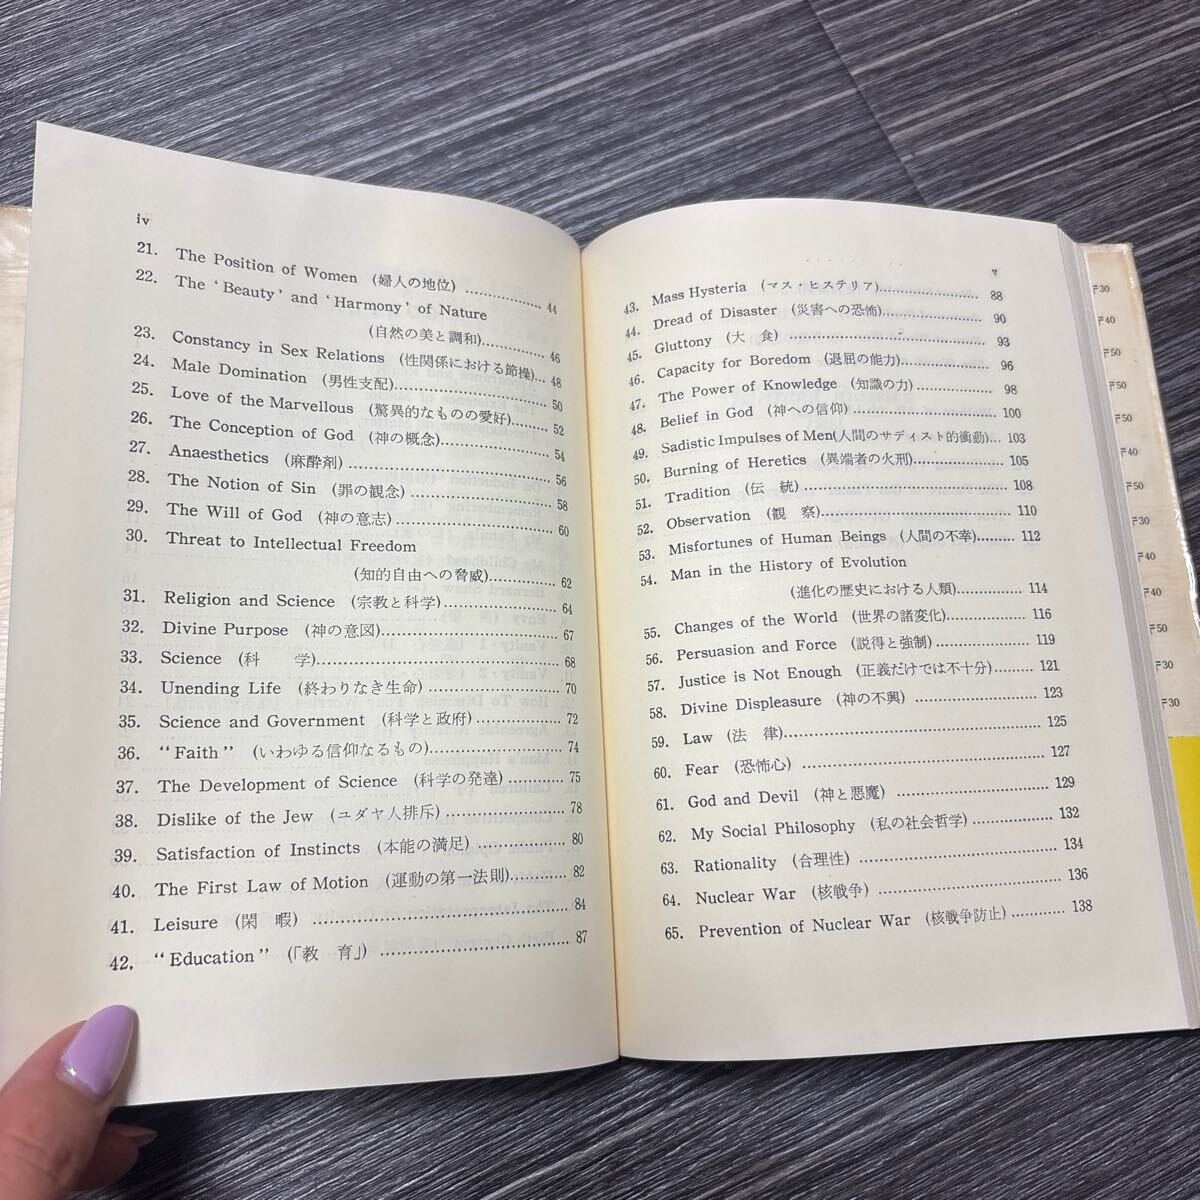 iv
21. The Position of Women (婦人の地位) .................. 44
22. The 'Beauty' and 'Harmony' of Nature
(自然の美と調和)............... 46
23. Constancy in Sex Relations (性関係における節操)... 48
24. Male Domination (男性支配)........................... 50
25. Love of the Marvellous (驚異的なものの愛好)...... 52
26. The Conception of God (神の概念).................... 54
27. Anaesthetics (麻酔剤) .................................... 56
28. The Notion of Sin (罪の観念) ........................... 58
29. The Will of God (神の意志)............................. 60
30. Threat to Intellectual Freedom
(知的自由への脅威)............ 62
31. Religion and Science (宗教と科学) .................... 64
32. Divine Purpose (神の意図).............................. 67
33. Science (科 学)........................................... 68
34. Unending Life (終わりなき生命) ....................... 70
35. Science and Government (科学と政府) ............... 72
36. "Faith" (いわゆる信仰なるもの)...................... 74
37. The Development of Science (科学の発達) ......... 75
38. Dislike of the Jew (ユダヤ人排斥) .................... 78
39. Satisfaction of Instincts (本能の満足) ............... 80
40. The First Law of Motion (運動の第一法則)......... 82
41. Leisure (閑 暇) ........................................... 84
42. "Education" (「教 育」) ................................. 87
v
43. Mass Hysteria (マス・ヒステリア)................... 88
44. Dread of Disaster (災害への恐怖)..................... 90
45. Gluttony (大 食) .......................................... 93
46. Capacity for Boredom (退屈の能力)................. 96
47. The Power of Knowledge (知識の力) ................ 98
48. Belief in God (神への信仰) ............................. 100
49. Sadistic Impulses of Men(人間のサディスト的衝動)... 103
50. Burning of Heretics (異端者の火刑).................. 105
51. Tradition (伝 統) ......................................... 108
52. Observation (観 察)...................................... 110
53. Misfortunes of Human Beings (人間の不幸)......... 112
54. Man in the History of Evolution
(進化の歴史における人類)............... 114
55. Changes of the World (世界の諸変化)............... 116
56. Persuasion and Force (説得と強制) .................. 119
57. Justice is Not Enough (正義だけでは不十分)...... 121
58. Divine Displeasure (神の不興) ........................ 123
59. Law (法 律)................................................ 125
60. Fear (恐怖心) ............................................. 127
61. God and Devil (神と悪魔) .............................. 129
62. My Social Philosophy (私の社会哲学) ............... 132
63. Rationality (合理性) ..................................... 134
64. Nuclear War (核戦争) ................................... 136
65. Prevention of Nuclear War (核戦争防止) ............ 138
〒30
〒40
〒50
〒50
〒40
〒50
〒30
〒30
〒40
〒50
〒30
〒30